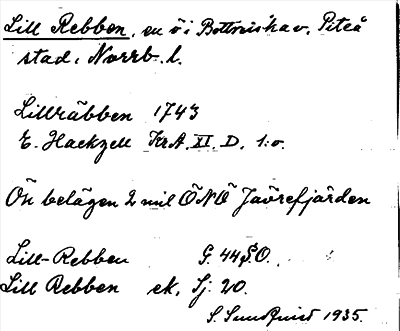 Lill Rebben, en ö i Bottniska v. Piteå
stad i Norrb. l.
Lillräbben 1743
E. Hackzell KrA. XI. D. 1:o.
Ön belägen 2 mil ÖNÖ Javrefjärden
Lill-Rebben G. 44 S.O.
Lill Rebben ek. Sj. 20.
S. Sundqvist 1935.